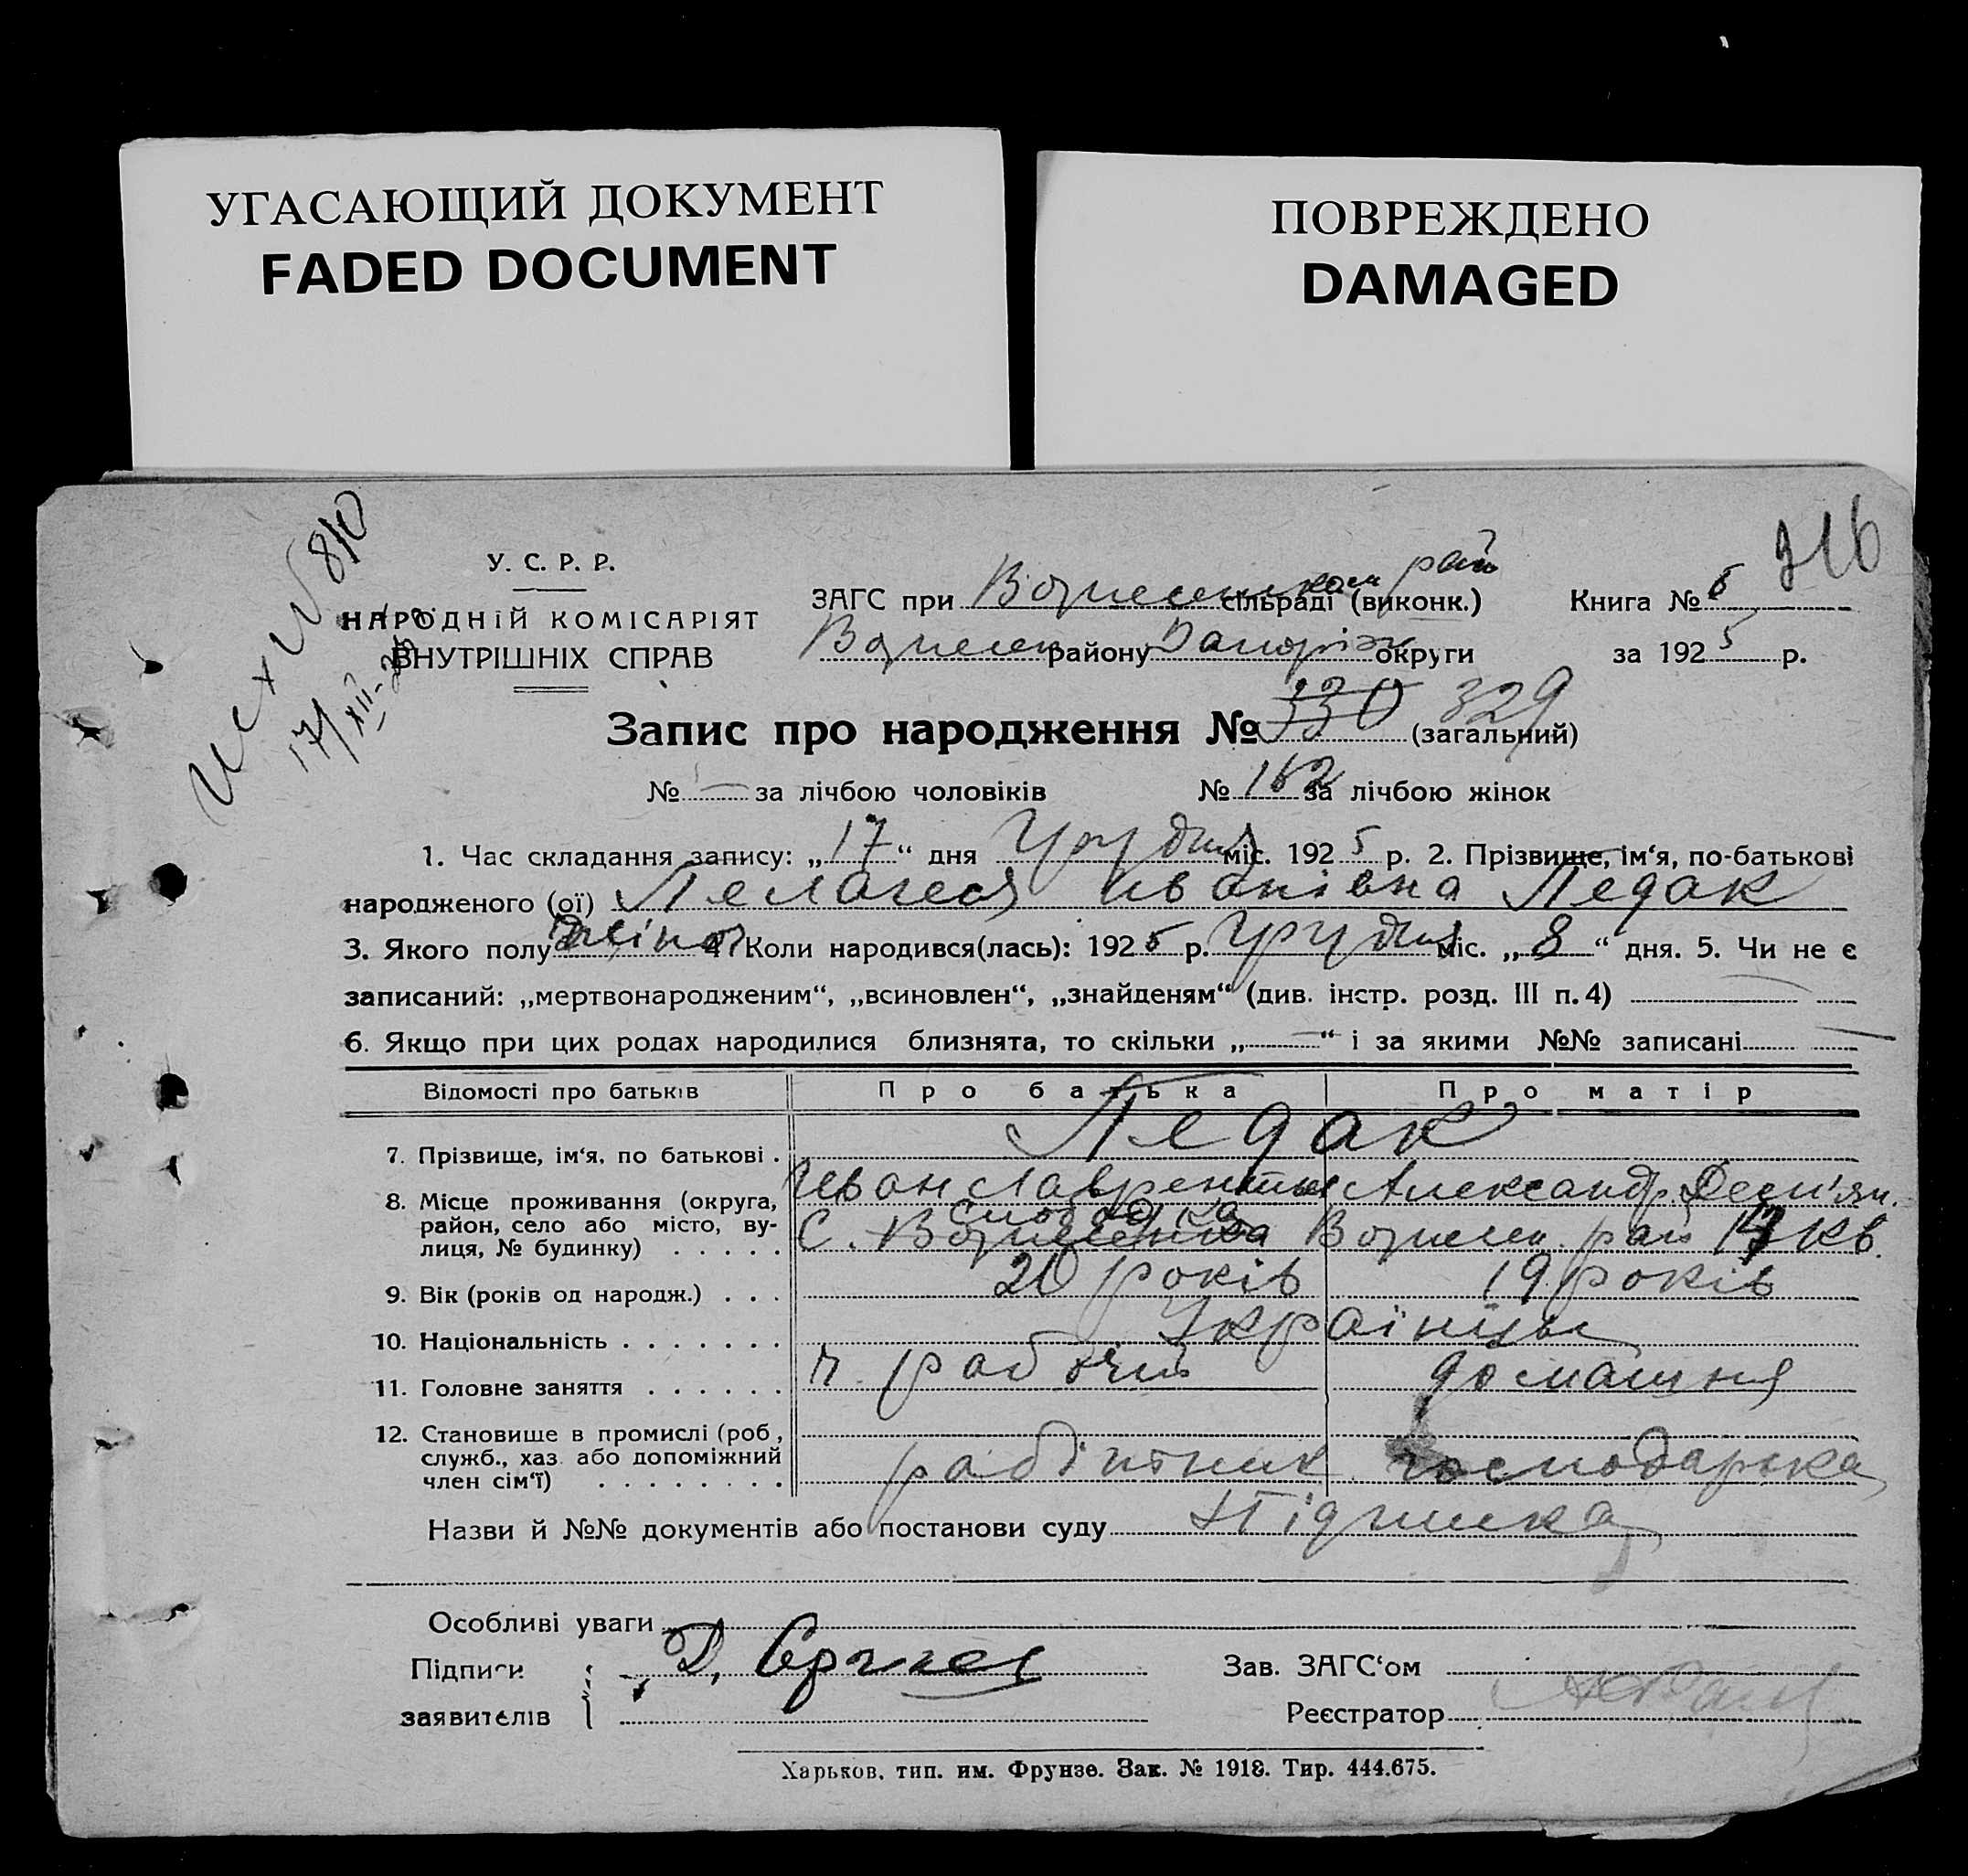 УГАСАЮЩИЙ ДОКУМЕНТ
FADED DOCUMENT
ПОВРЕЖДЕНО
DAMAGED
316
Исх № 810
17/XII-25
У. С. Р. Р.
НАРОДНІЙ КОМІСАРІЯТ
ВНУТРІШНІХ СПРАВ
ЗАГС при Вознесенськом рай сільраді (виконк.) Книга № 6
Вознесен району Запоріж округи за 1925 р.
Запис про народження № 330 329 (загальний)
№ — за лічбою чоловіків № 162 за лічбою жінок
1. Час складання запису: „17“ дня Грудня міс. 1925 р. 2. Прізвище, ім‘я, по-батькові
народженого (ої) Пелагея Іванівна Педак
3. Якого полу жіноч 4. Коли народився(лась): 1925 р. Грудня міс. „8“ дня. 5. Чи не є
записаний: „мертвонародженим“, „всиновлен“, „знайденям“ (див. інстр. розд. III п. 4) —
6. Якщо при цих родах народилися близнята, то скільки „—“ і за якими №№ записані —
Відомості про батьків Про батька Про матір
7. Прізвище, ім‘я, по батькові . Педак
Іван Лаврентьев Александр. Дем'ян.
8. Місце проживання (округа, район, село або місто, вулиця, № будинку) . . . . . С. Слободка Вознесенка Вознесен. рай 17 кв.
9. Вік (років од народж.) . . . 20 років 19 років
10. Національність . . . . . . . Українцы
11. Головне заняття . . . . . . ч. рабочий домашня
12. Становище в промислі (роб, служб., хаз. або допоміжний член сім‘ї) . . . . . . . . робітник господарька
Назви й №№ документів або постанови суду Підписка
Особливі уваги
Підписи Д. Зав. ЗАГС‘ом
заявителів Реєстратор
Харьков, тип. им. Фрунзе. Зак. № 1918. Тир. 444.675.